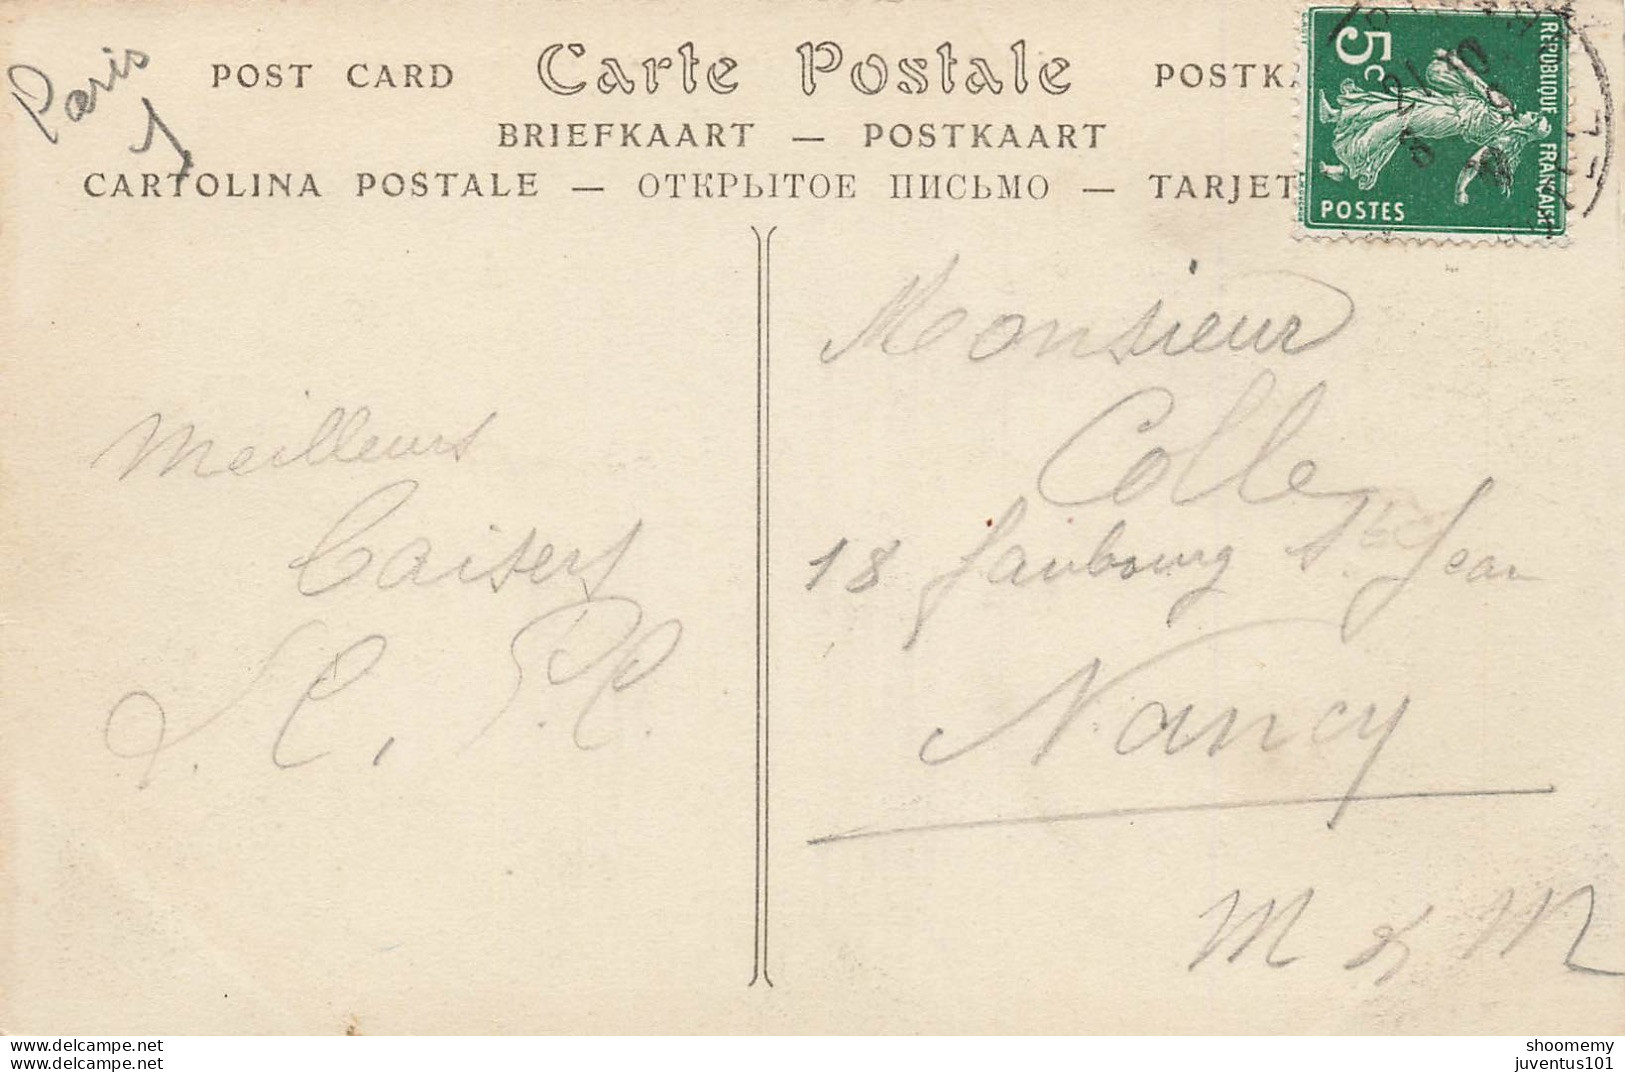 Paris
POST CARD Carte Postale POSTK
BRIEFKAART — POSTKAART
CARTOLINA POSTALE — ОТКРЫТОЕ ПИСЬМО — TARJET
REPUBLIQUE FRANÇAISE
5c
POSTES
21 10
Monsieur
Colle
18 faubourg St Jean
Nancy
M & M
Meilleurs
Baisers
L.C, P.C.
delcampe.net
delcampe.net
shoomemy
juventus101